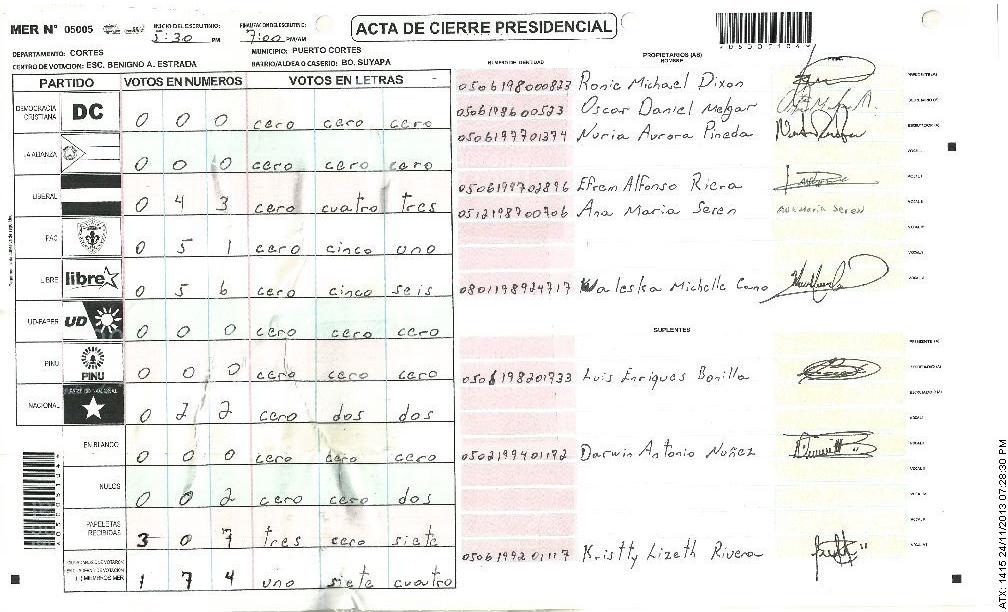 MER N° 05005
INICIO DEL ESCRUTINIO: 5:30 PM
FINALIZACION ESCRUTINIO: 7:00 PM/AM
ACTA DE CIERRE PRESIDENCIAL
DEPARTAMENTO: CORTES
MUNICIPIO: PUERTO CORTES
CENTRO DE VOTACION: ESC. BENIGNO A. ESTRADA
BARRIO/ALDEA O CASERIO: BO. SUYAPA
PARTIDO VOTOS EN NUMEROS VOTOS EN LETRAS
DEMOCRACIA CRISTIANA DC 0 0 0 cero cero cero
LA ALIANZA 0 0 0 cero cero cero
LIBERAL 0 4 3 cero cuatro tres
PAC 0 5 1 cero cinco uno
LIBRE libre 0 5 6 cero cinco seis
UD-FAPER UD 0 0 0 cero cero cero
PINU PINU 0 0 0 cero cero cero
NACIONAL 0 2 2 cero dos dos
EN BLANCO 0 0 0 cero cero cero
NULOS 0 0 2 cero cero dos
PAPELETAS RECIBIDAS 3 0 7 tres cero siete
1 7 4 uno siete cuatro
NUMERO DE IDENTIDAD
PROPIETARIOS (AS)
NOMBRE
FIRMA
0506198000823 Ronie Michael Dixon
0506198600523 Oscar Daniel Melgar
0506197701374 Nuria Aurora Pineda
0506199702896 Efrem Alfonso Riera
0512198700706 Ana Maria Seren Ana Maria Seren
0801198924717 Waleska Michelle Cano
SUPLENTES
0506198201733 Luis Enriques Bonilla
0502199401192 Darwin Antonio Nuñez
0506199201117 Kristty Lizeth Rivera
ATX: 1415 24/11/2013 07:28:30 PM